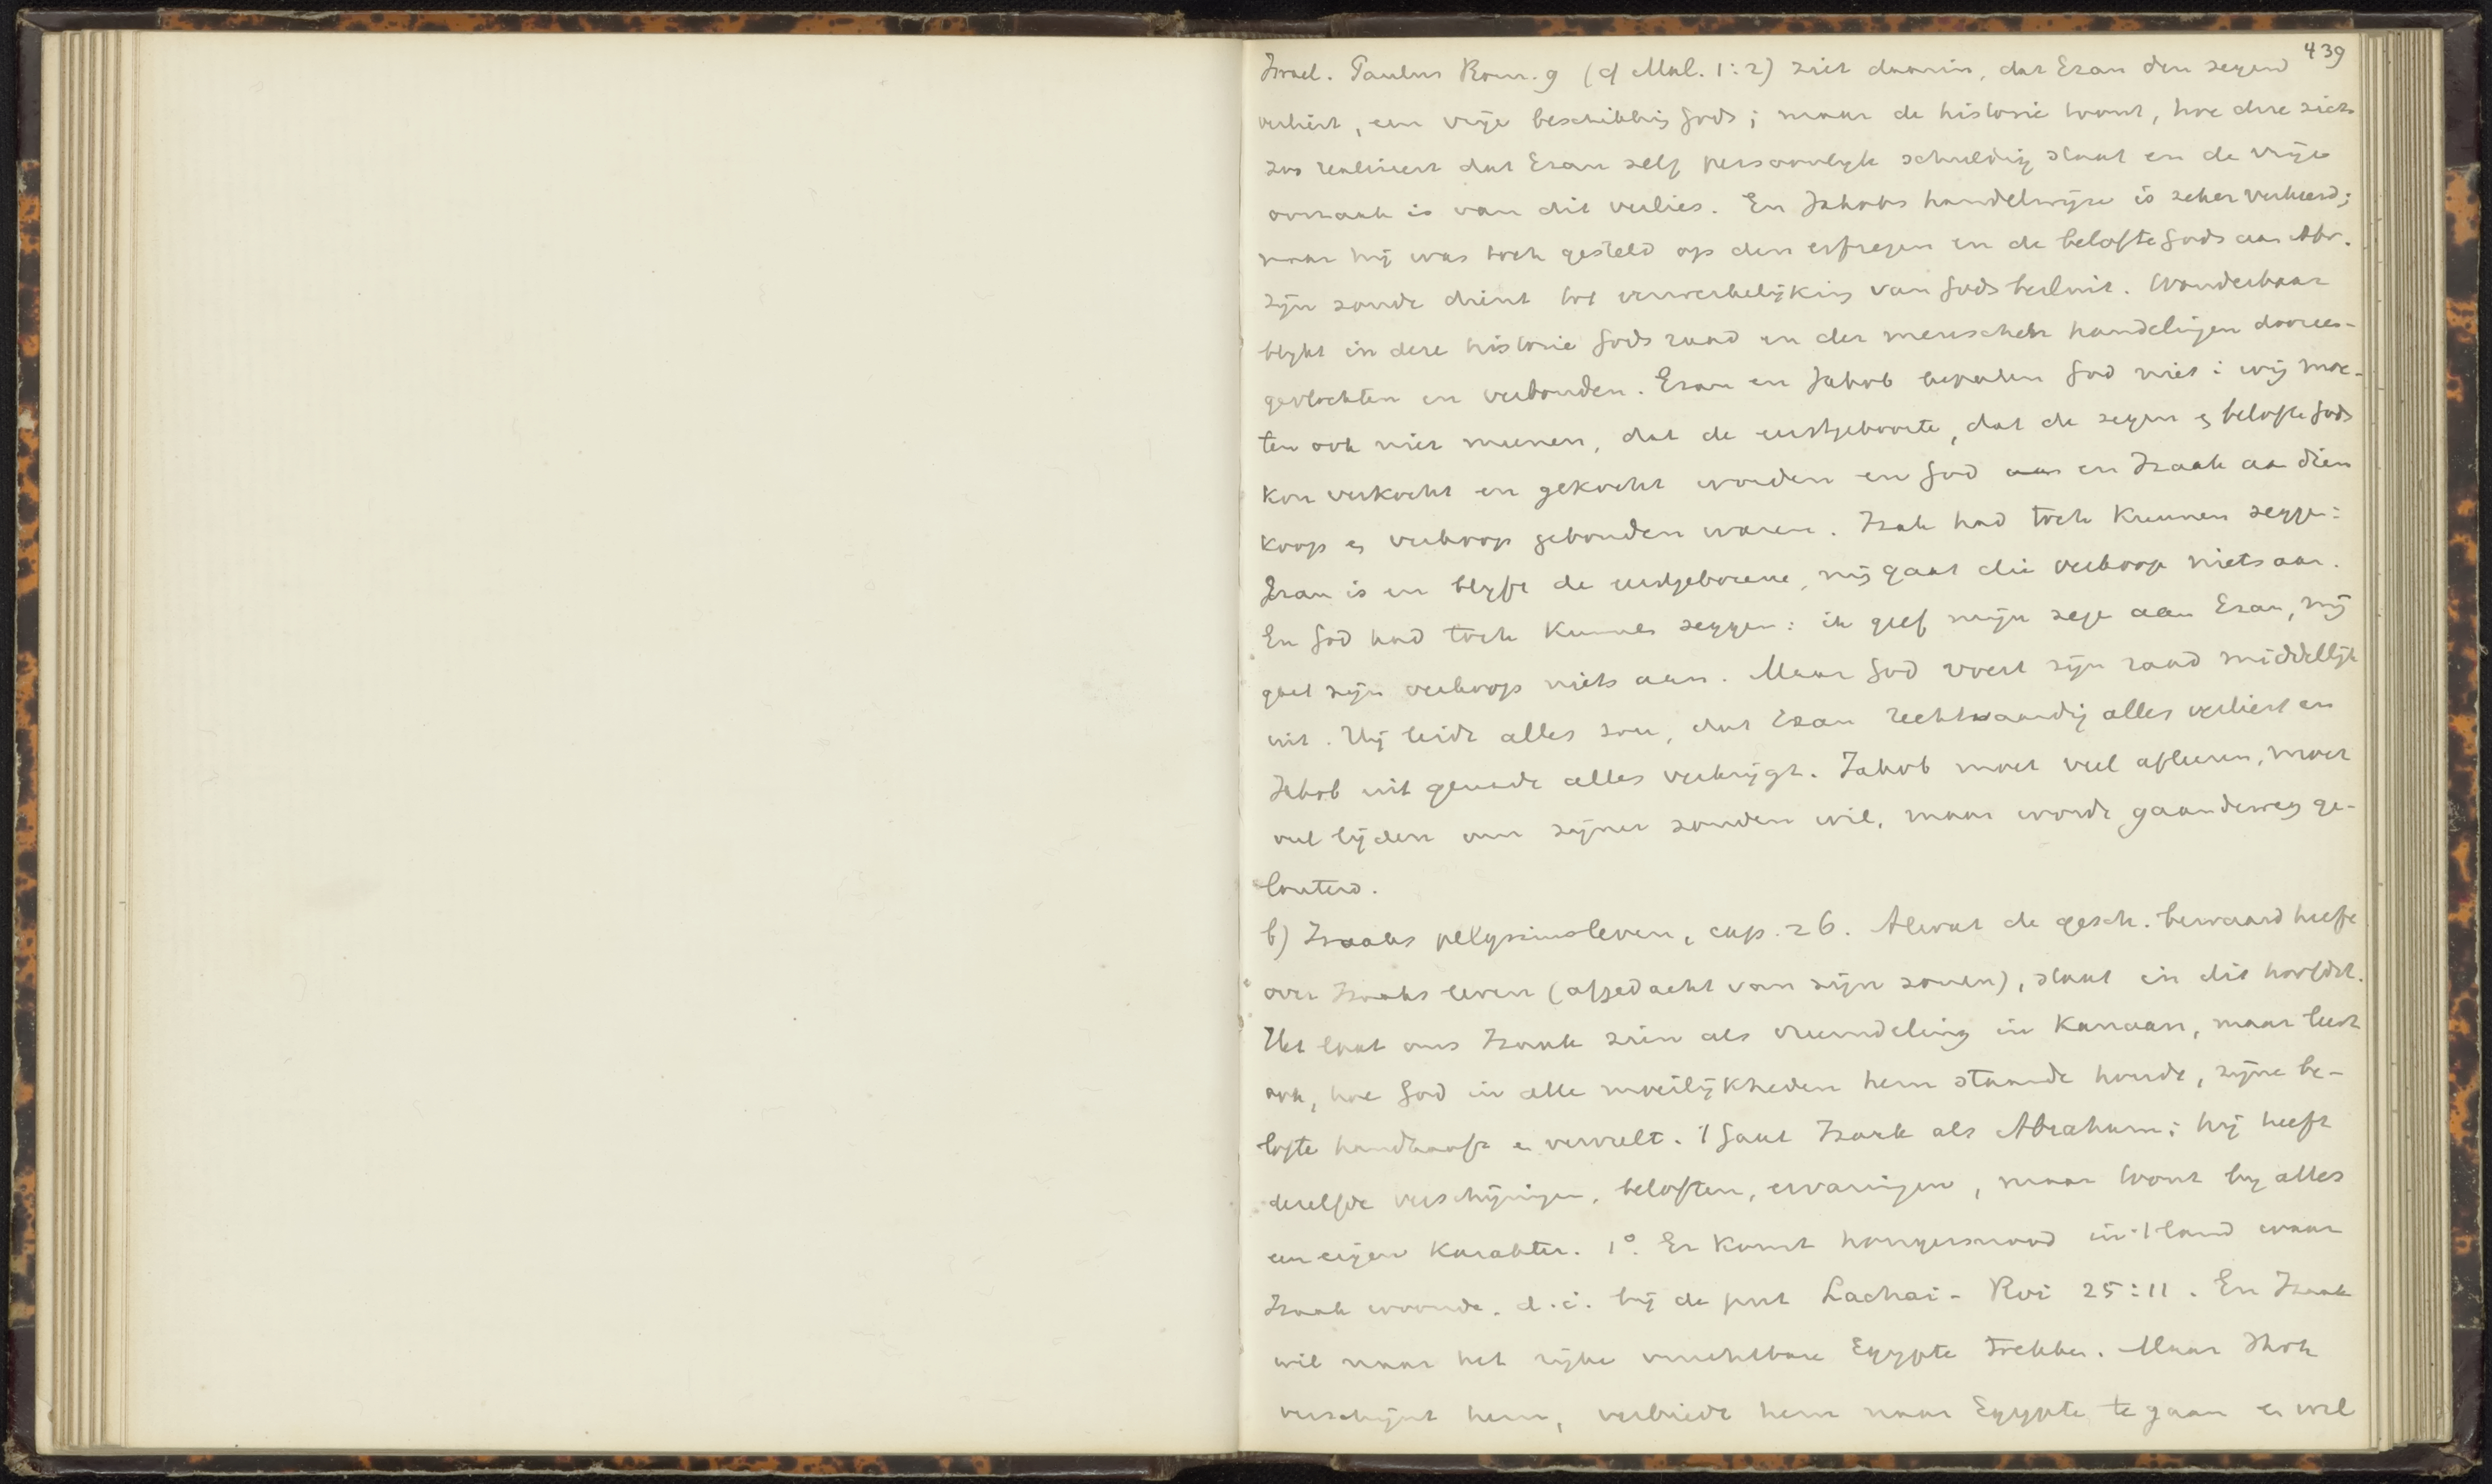 439
Israel. Paulus Rom. 9 (cf Mal. 1:2) ziet daarin, dat Ezau den zegen
verliest, een vrije beschikking Gods; maar de historie toont, hoe deze zich
zoo realiseert dat Ezau zelf persoonlijk schuldig staat en de vrije
oorzaak is van dit verlies. En Jakobs handelwijze is zeker verkeerd;
maar hij was toch gesteld op den erfzegen en de belofte Gods aan Abr.
Zijn zonde dient tot verwerkelijking van Gods besluit. Wonderbaar
blijkt in deze historie Gods raad en der menschen handelingen dooreen-
gevlochten en verbonden. Ezau en Jakob bepalen God niet: wij moe-
ten ook niet meenen, dat de eerstgeboorte, dat de zegen en belofte Gods
kon verkocht en gekocht worden en God en Izaak aan dien
koop en verkoop gebonden waren. Izak had toch kunnen zeggen:
Ezau is en blijft de eerstgeborene, mij gaat die verkoop niets aan.
En God had toch kunnen zeggen: ik geef mijn zegen aan Ezau, mij
gaat zijn verkoop niets aan. Maar God voert zijn raad middellijk
uit. Hij leidt alles zoo, dat Ezau rechtvaardig alles verliest en
Jakob uit genade alles verkrijgt. Jakob moet veel afleeren, moet
veel lijden om zijner zonden wil, maar wordt gaandeweg ge-
louterd.
b) Izaaks pelgrimsleven, cap. 26. Alwat de gesch. bewaard heeft
over Izaaks leven (afgedacht van zijn zonen), staat in dit hoofdst.
Het laat ons Izaak zien als vreemdeling in Kanaan, maar leert
ook, hoe God in alle moeilijkheden hem staande houdt, zijne be-
lofte handhaaft en vervult. 't Gaat Izaak als Abraham; hij heeft
dezelfde verschijningen, beloften, ervaringen, maar toont bij alles
een eigen karakter. 1°. Er komt hongersnood in 't land waar
Izaak woonde. d.i. bij de put Lachai-Roi 25:11. En Izaak
wil naar het rijke vruchtbare Egypte trekken. Maar Jhvh
verschijnt hem, verbiedt hem naar Egypte te gaan en wil